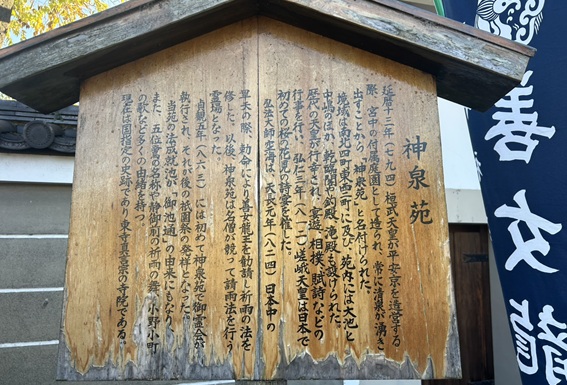 神泉苑
延暦十三年(七九四)桓武天皇が平安京を造営する
際、宮中の付属庭園として造られ、常に清泉が湧き
出すことから「神泉苑」と名付けられた。
境域は南北四町東西二町に及び、苑内には大池と
中嶋のほか、乾臨閣や釣殿、滝殿も設けられた。
歴代の天皇が行幸され、宴遊、相撲、賦詩などの
行事を行い、弘仁三年(八一二)嵯峨天皇は日本で
初めての桜の花見の詩宴を催した。
弘法大師空海は、天長元年(八二四)日本中の
旱天の際、勅命により善女龍王を勧請し祈雨の法を
修した。以後、神泉苑は名僧が競って請雨法を行う
霊場となった。
貞観五年(八六三)には初めて神泉苑で御霊会が
執行され、それが後の祇園祭の発祥となった。
当苑の法成就池が、「御池通」の由来にもなり、
また、五位鷺の名称や静御前の祈雨の舞、小野小町
の歌など多くの由緒を持つ。
現在は国指定の史跡であり東寺真言宗の寺院である。
善女龍